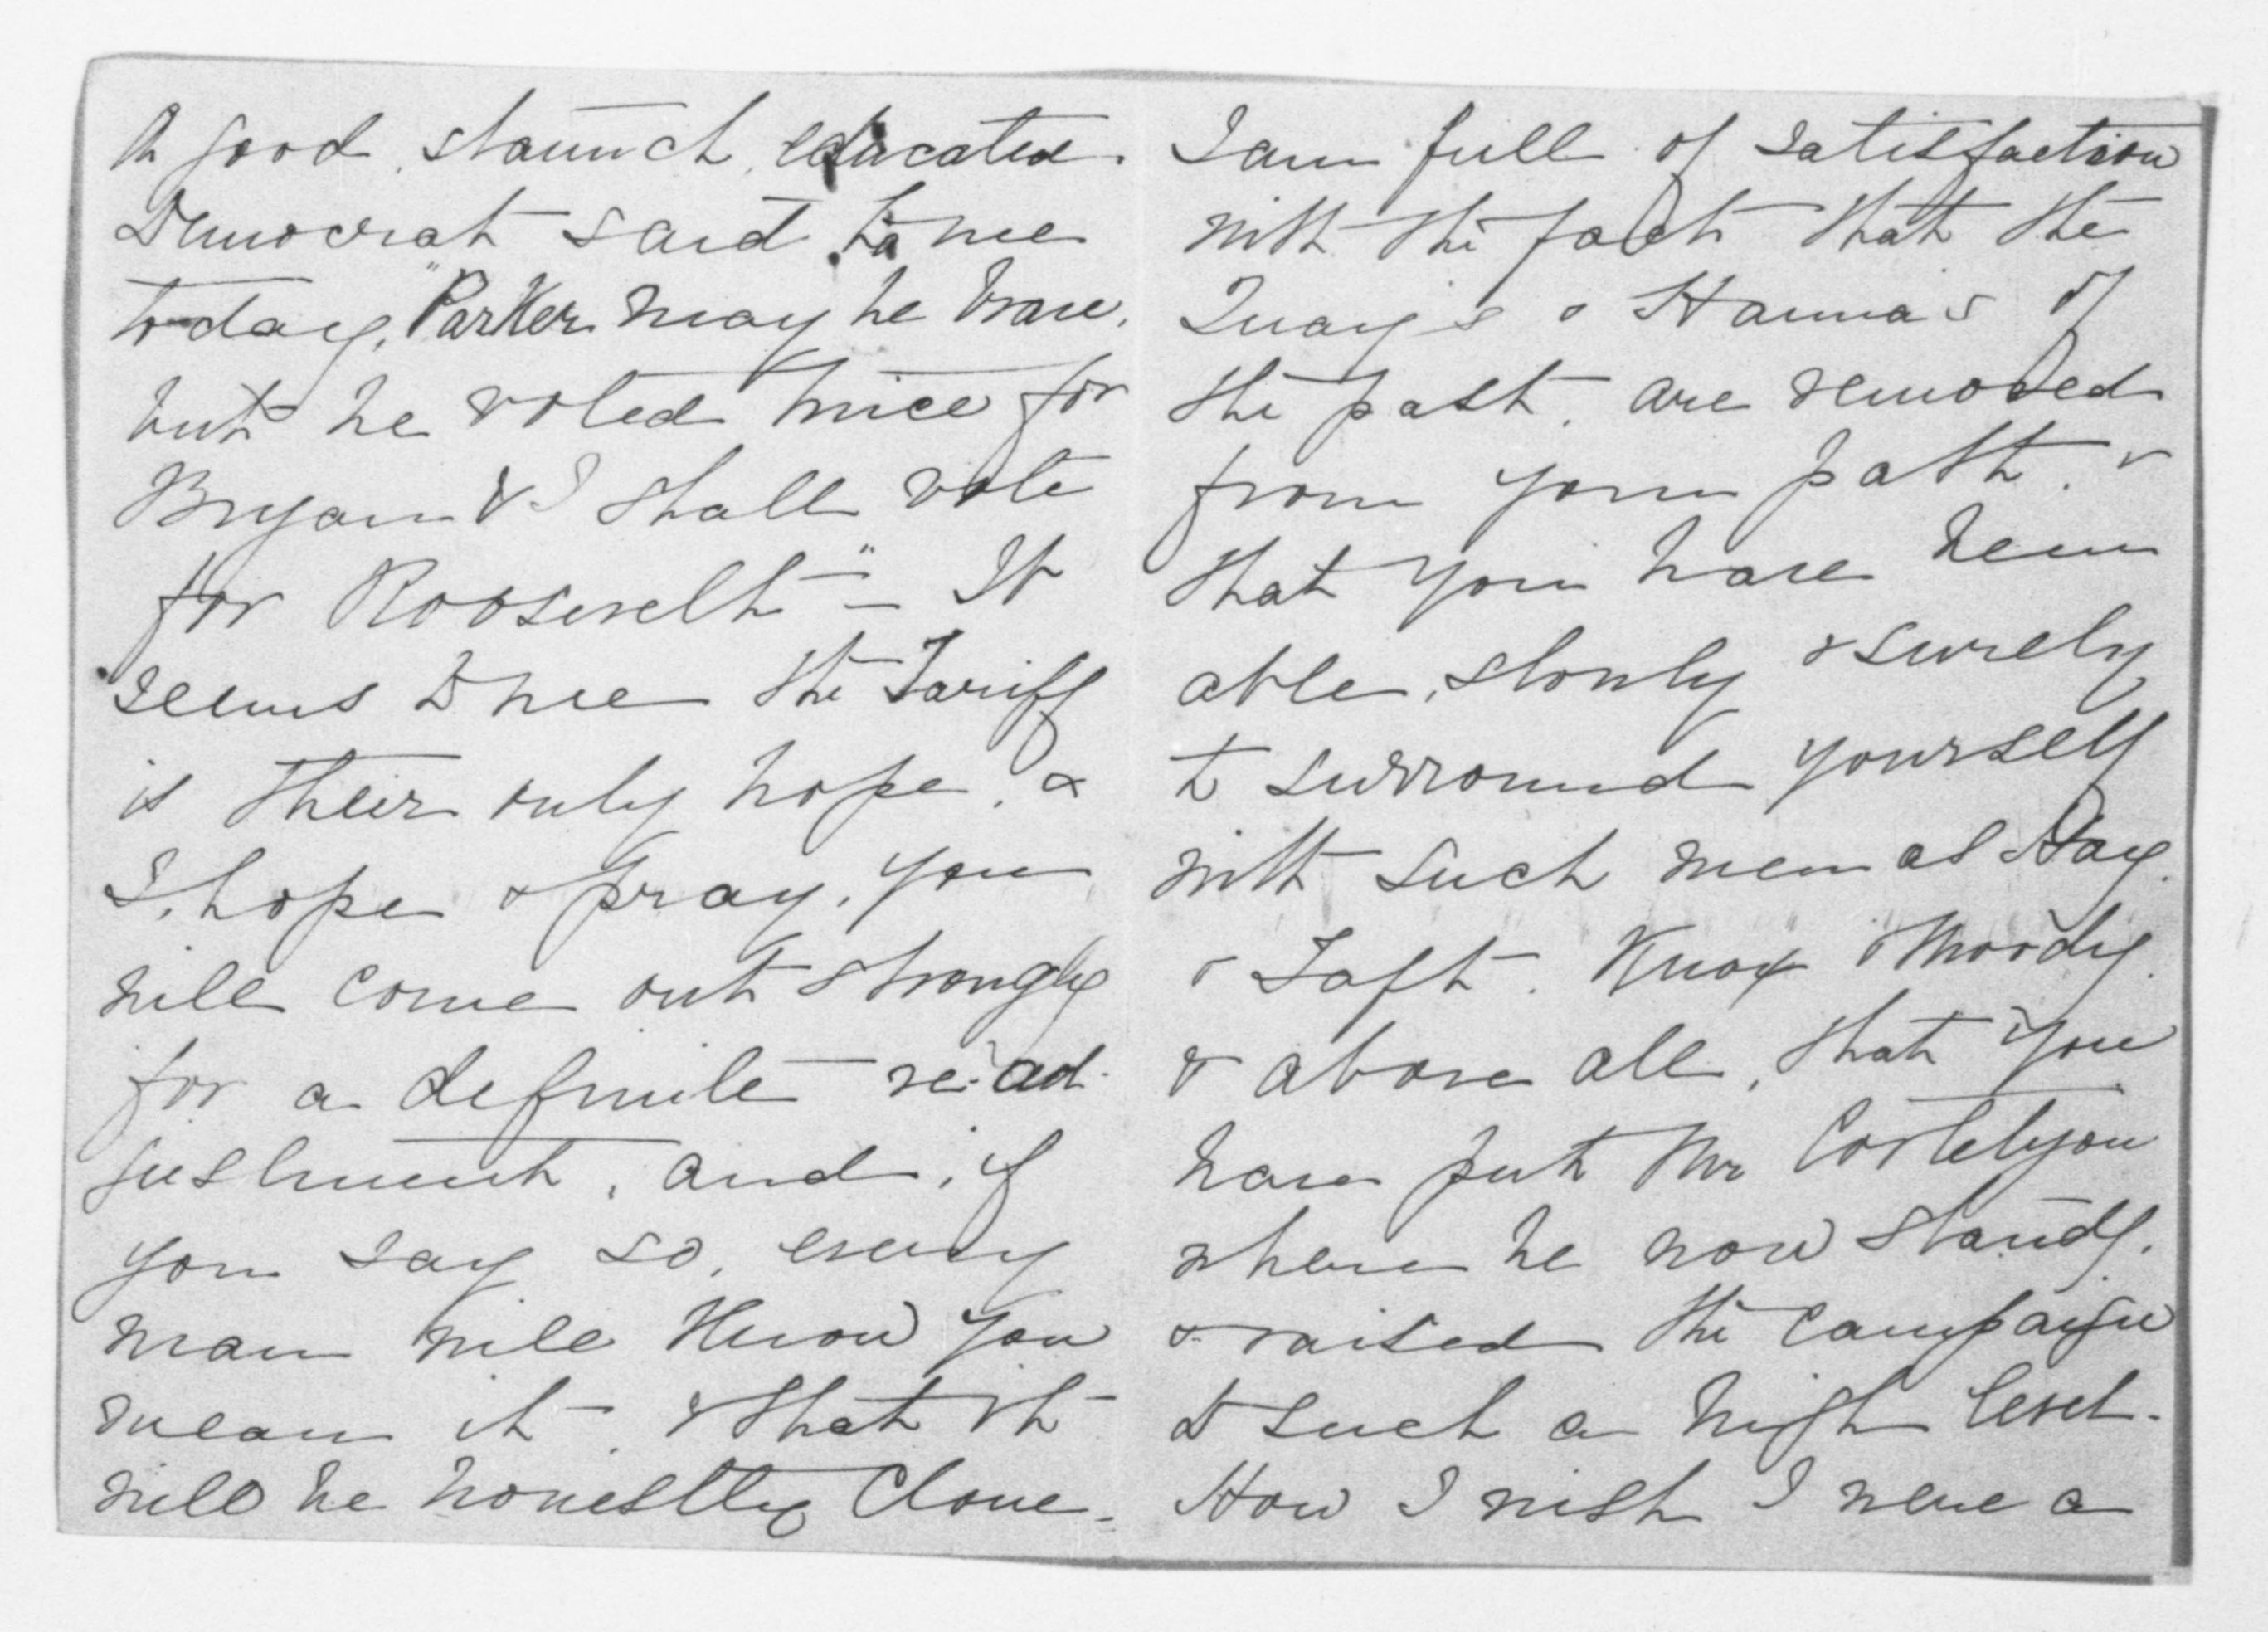 A good, staunch, educated.
Democrat said to me
to-day, "Parker may be brave,
but he voted twice for
Bryan & I shall vote
for Roosevelt" — It
seems to me the Tariff
is their only hope, &
I hope & pray, you
will come out strongly
for a definite re-ad-
justment, and, if
you say so, every
man will know you
mean it, & that it
will be honestly done.
I am full of satisfaction
with the fact that the
Quay's & Hanna's of
the past, are removed
from your path, &
that you have been
able, slowly & surely,
to surround yourself
with such men as Hay,
& Taft, Knox & Moody,
& above all, that you
have put Mr Cortelyou
where he now stands,
& raised the campaign
to such a high level.
How I wish I were a